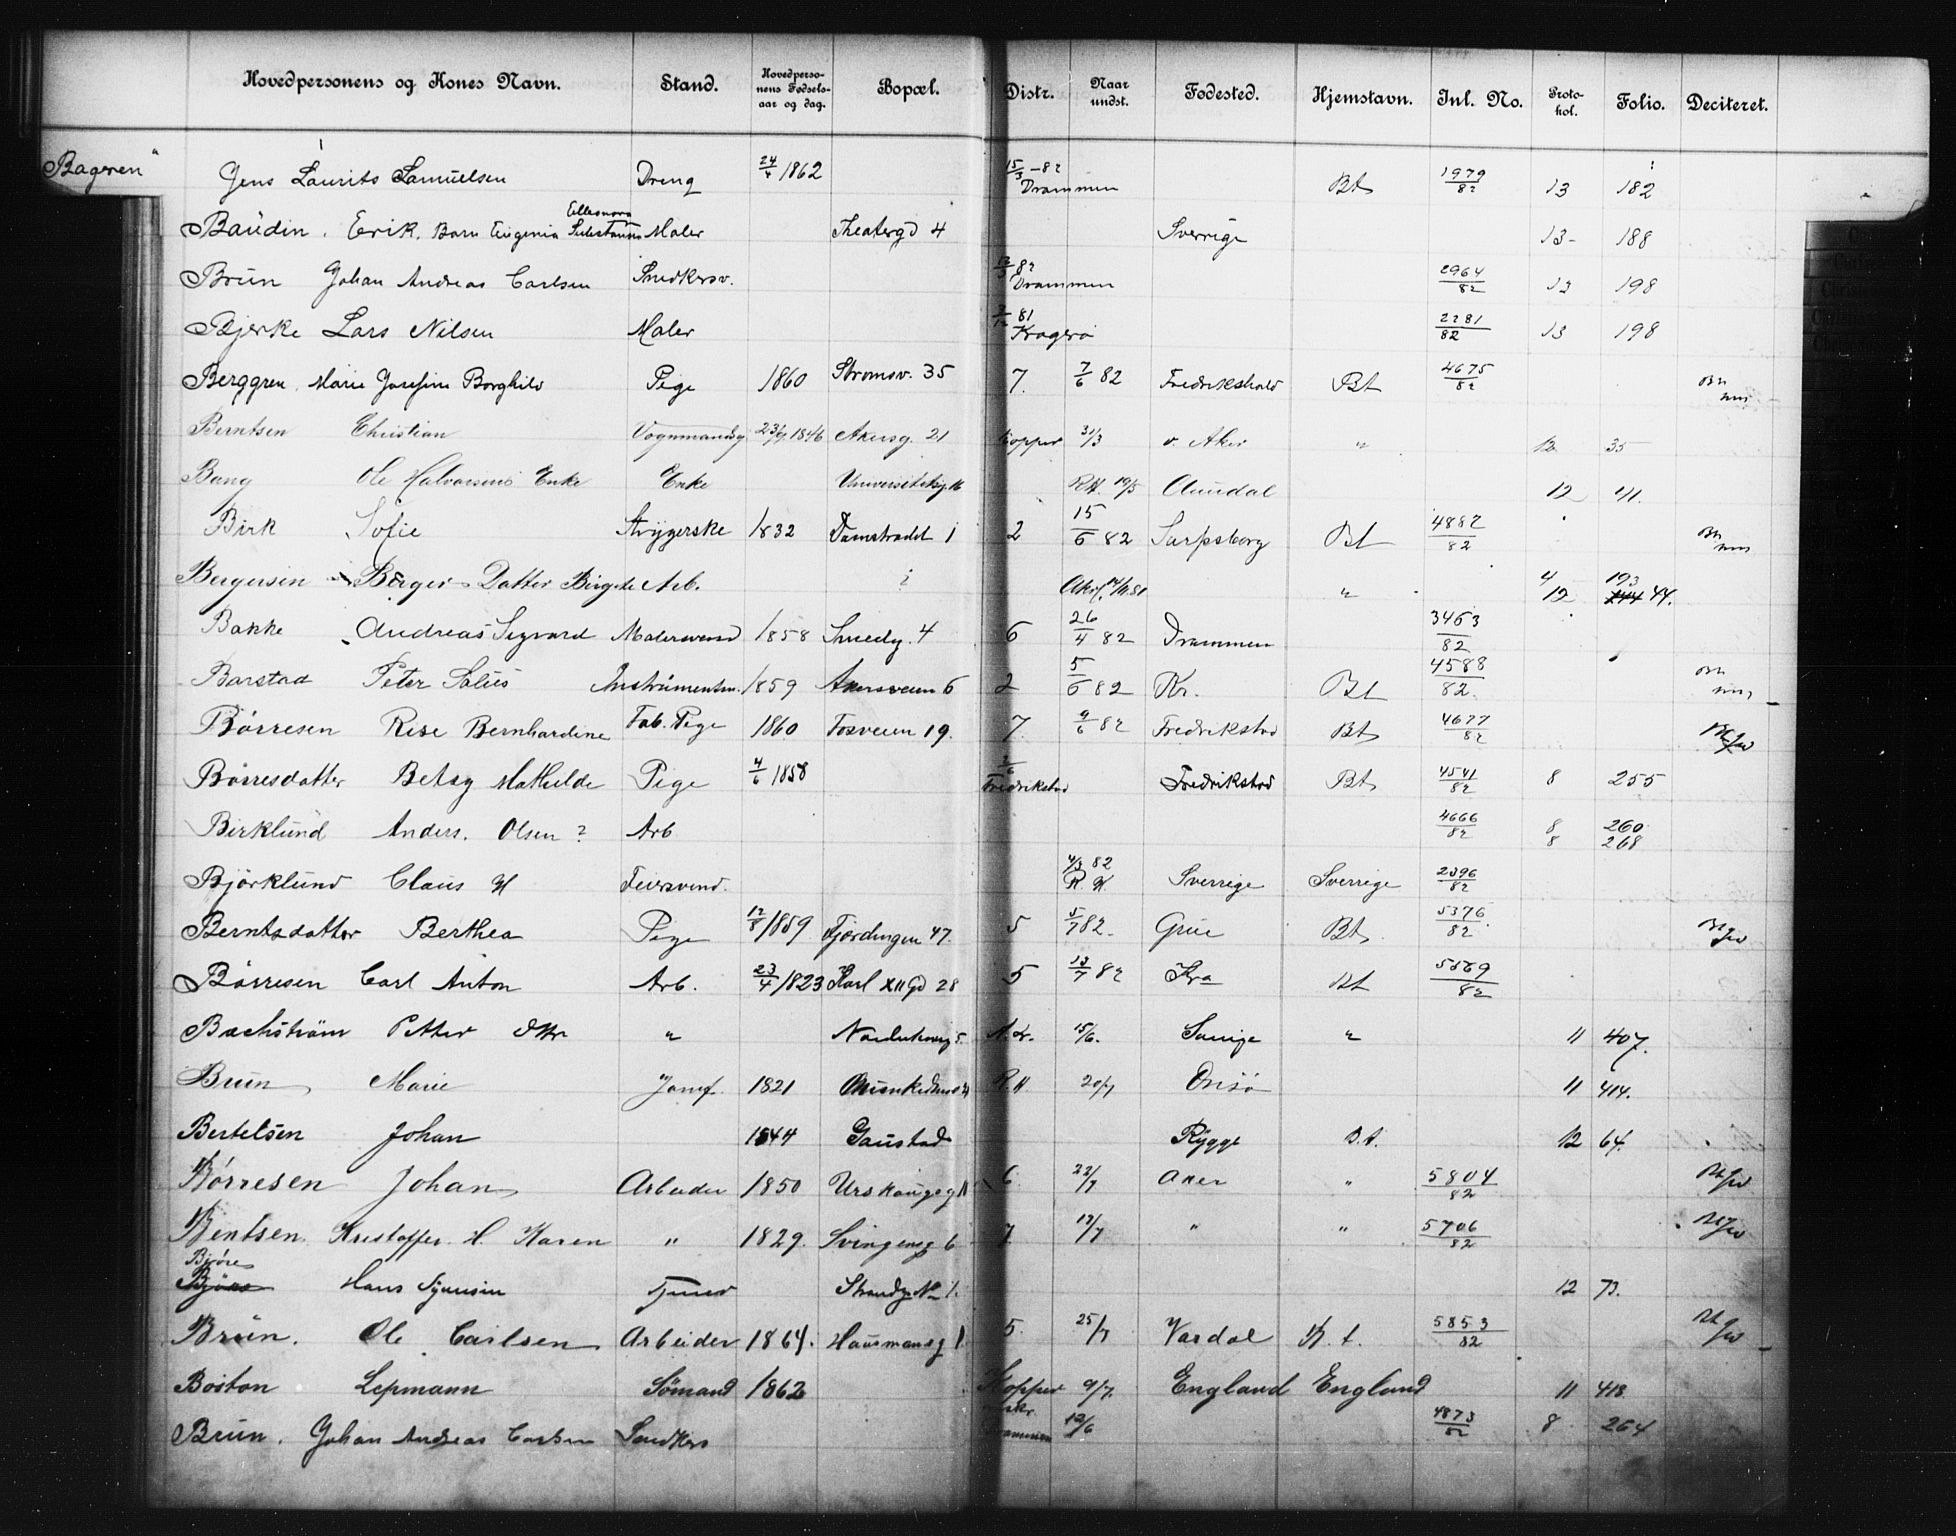 Hovedpersonens og Kones Navn. Stand. Hovedpersonens Fødselsaar og dag. Bopæl. Distr. Naar undst. Fødested. Hjemstavn. Inl. No. Protokol. Folio. Deciteret.
"Bageren" Jens Laurits Samuelsen Dreng 24/4 1862 15/3 -82 Drammen Bt 1979/82 13 182
Baudin. Erik. Barn Eugenia Elleonora Maler Theatergd 4 Sverrige 13- 188
Brun Johan Andreas Carlsen Snedkersv. 82 Drammen 2964/82 13 198
Bjerke Lars Nilsen Maler 81 Kragerø 2281/82 13 198
Berggren, Marie Josefine Borghild Pige 1860 Strømsv. 35 7. 7/6 82 Fredrikshald Bt 4675/82
Berntsen Christian Vognmandsg 23/9 1846 Akersg. 21 Kopper 31/3 v. Aker " 12 35
Bang Ole Halvorsens Enke Enke Universitetsg. 16 R.H. 19/5 12 41.
Birk Sofie Strygerske 1832 Damstradet 1 2 15/6 82 Sarpsborg Bt 4887/82
Bergersen Børger Datter Birgitte Arb. " 4 193 12 44.
Bakke Andreas Sigvard Malersvend 1858 Smedg. 4 6 26/4 82 Drammen 3463/82
Barstad Peter Julius Instrumentm. 1859 Akersveien 6 2 5/6 82 Kr. Bt 4588/82.
Børresen Rise Bernhardine Fab. Pige 1860 Fosveien 19. 7. 9/6 82 Fredrikstad Bt 4677/82
Børresdatter Betsy Mathilde Pige 4/6 1858 Fredrikstad Fredrikstad Bt 4541/82 8 255
Birklund Anders. Olsen? Arb 4666/82 8 260
8 268
Bjørklund Claus H Feiersvend. 4/3 82 R. H. Sverrige Sverrige 2396/82
Berntsdatter Berthea Pige 12/8 1859 Fjerdingen 47. 5 5/7 82. Grue Bt 5376/82
Børresen Carl Anton Arb. 23/4 1823 Karl XII Gd 28 5 13/7 82 Kra Bt 5569/82
Bachstrøm Petter " 15/6. " 11 407.
Brun Marie Jomf. 1821 Munkedamsv R.H. 20/7 11 414.
Bertelsen Johan 1844 Gaustad Rygge B.t. 12 64.
Børresen Johan Arbeider 1850 Urskougsg 6. 22/7 Aker " 5804/82
Bentsen Kristoffer H. Karen " 1829. Svingensg 6 7. 13/7 " " 5706/82
Bjøre
Hans 12 73.
Brun. Ole Carlsen Arbeider 1864. Hausmansg 1. 5. 25/7 Vardal B. t. 5853/82
Boston Lepmann Sømand 1862 Kopper 9/7. England England 11 418
Brun. Johan Andreas Carlsen Snedkers 12/6 4873/82 8 264